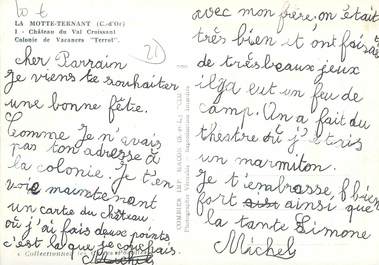 LA MOTTE-TERNANT (C.-d'Or)
1 - Château du Val Croissant
Colonie de Vacances "Terrot".
21
cher Parrain
Je viens te souhaiter
une bonne fête.
Comme Je n'avais
pas ton adresse à
la colonie. Je t'en
voie maintenant
un carte du château
où j'ai fais deux points
c'est la que je couchais.
COMBIER IMP. MACON
avec mon frère on était
très bien et ont faisait
de très beaux jeux
il y a eut un feu de
camp. On a fait du
théatre où j'étris
un marmiton.
Je t'embrasse bien
fort ainsi que
la tante Simone
Michel